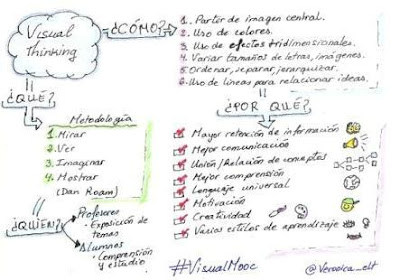 Visual
Thinking
¿CÓMO?
1. Partir de imagen central.
2. Uso de colores.
3. Uso de efectos tridimensionales.
4. Variar tamaños de letras, imágenes.
5. Ordenar, separar, jerarquizar.
6. Uso de líneas para relacionar ideas.
¿QUÉ?
Metodología
1. Mirar
2. Ver
3. Imaginar
4. Mostrar
(Dan Roam)
¿QUIÉN?
Profesores
- Exposición de
temas
Alumnos
- Comprensión
y estudio
¿POR QUÉ?
Mayor retención de información
Mejor comunicación
Unión/Relación de conceptos
Mejor comprensión
Lenguaje universal
Motivación
Creatividad
Varios estilos de aprendizaje
#VisualMooc